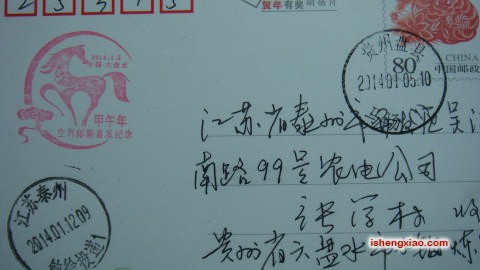 贺年有奖 明信片
2014.1.5
中国·六盘水
甲午年
生肖邮票首发纪念
贵州盘县
2014.01.05.10
80
CHINA
中国邮政
江苏省泰州市海陵区吴
南路99号农电公司
张学林 收
贵州省六盘水市
江苏泰州
2014.01.12.09
ishengxiao.com